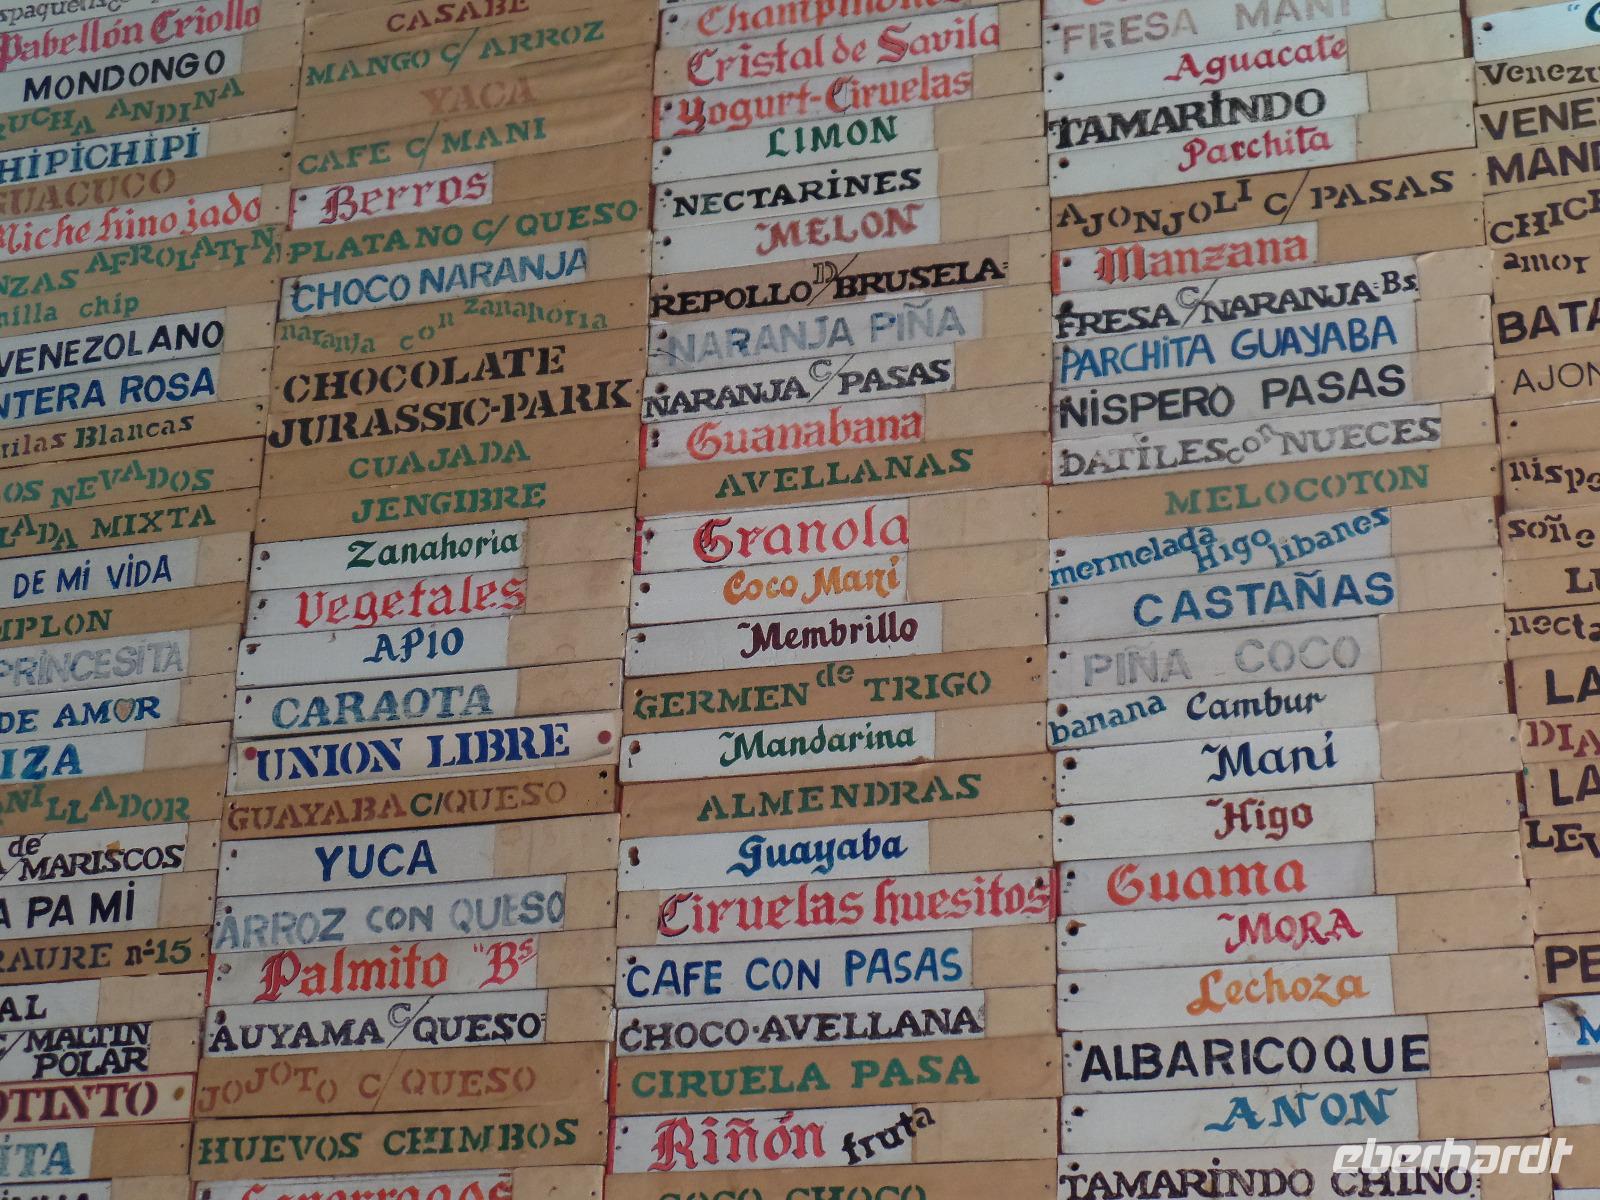 Pabellón Criollo
MONDONGO
ANDINA
HIPICHIPI
GUACUCO
AFROLATINA
chip
VENEZOLANO
ROSA
Blancas
NEVADOS
MIXTA
DE Mi ViDA
PRINCESITA
DE AMOR
de
MARISCOS
PA Mi
nº15
C/MALTIN
POLAR
CASABE
MANGO C/ARROZ
YACA
CAFE C/MANI
Berros
PLATANO C/QUESO
CHOCO NARANJA
naranja con zanahoria
CHOCOLATE
JURASSIC-PARK
CUAJADA
JENGIBRE
Zanahoria
Vegetales
APIO
CARAOTA
UNION LIBRE
GUAYABA C/QUESO
YUCA
ARROZ CON QUESO
Palmito "Bs
AUYAMA C/QUESO
JOJOTO C/QUESO
HUEVOS CHIMBOS
Cristal de Savila
Yogurt-Ciruelas
LIMON
NECTARINES
MELON
REPOLLO D/BRUSELA
NARANJA PIÑA
NARANJA C/PASAS
Guanabana
AVELLANAS
Granola
Coco Mani
Membrillo
GERMEN de TRIGO
Mandarina
ALMENDRAS
Guayaba
Ciruelas huesitos
CAFE CON PASAS
CHOCO·AVELLANA
CIRUELA PASA
Riñón fruta
COCO CHOCO
FRESA MANI
Aguacate
TAMARINDO
Parchita
AJONJOLI C/PASAS
Manzana
FRESA C/NARANJA·Bs.
PARCHITA GUAYABA
NISPERO PASAS
DATILES con NUECES
MELOCOTON
mermelada Higo libanes
CASTAÑAS
PIÑA COCO
banana Cambur
Mani
Higo
Guama
MORA
Lechoza
ALBARICOQUE
ANON
TAMARINDO CHINO
amor
eberhardt